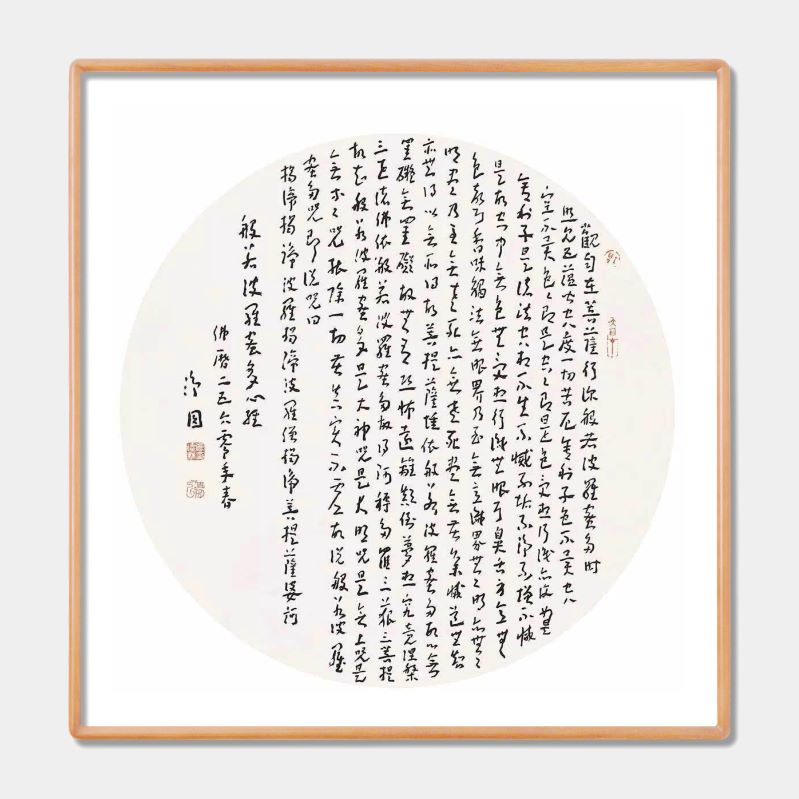 觀自在菩薩行深般若波羅蜜多時
照見五蘊皆空度一切苦厄舍利子色不異空
空不異色色即是空空即是色受想行識亦復如是
舍利子是諸法空相不生不滅不垢不淨不增不減
是故空中無色無受想行識無眼耳鼻舌身意無
色聲香味觸法無眼界乃至無意識界無無明亦無無
明盡乃至無老死亦無老死盡無苦集滅道無智
亦無得以無所得故菩提薩埵依般若波羅蜜多故心無
罣礙無罣礙故無有恐怖遠離顛倒夢想究竟涅槃
三世諸佛依般若波羅蜜多故得阿耨多羅三藐三菩提
故知般若波羅蜜多是大神咒是大明咒是無上咒是
無等等咒能除一切苦真實不虛故說般若波羅
蜜多咒即說咒曰
揭諦揭諦波羅揭諦波羅僧揭諦菩提薩婆訶
般若波羅蜜多心經
佛曆二五六零年春